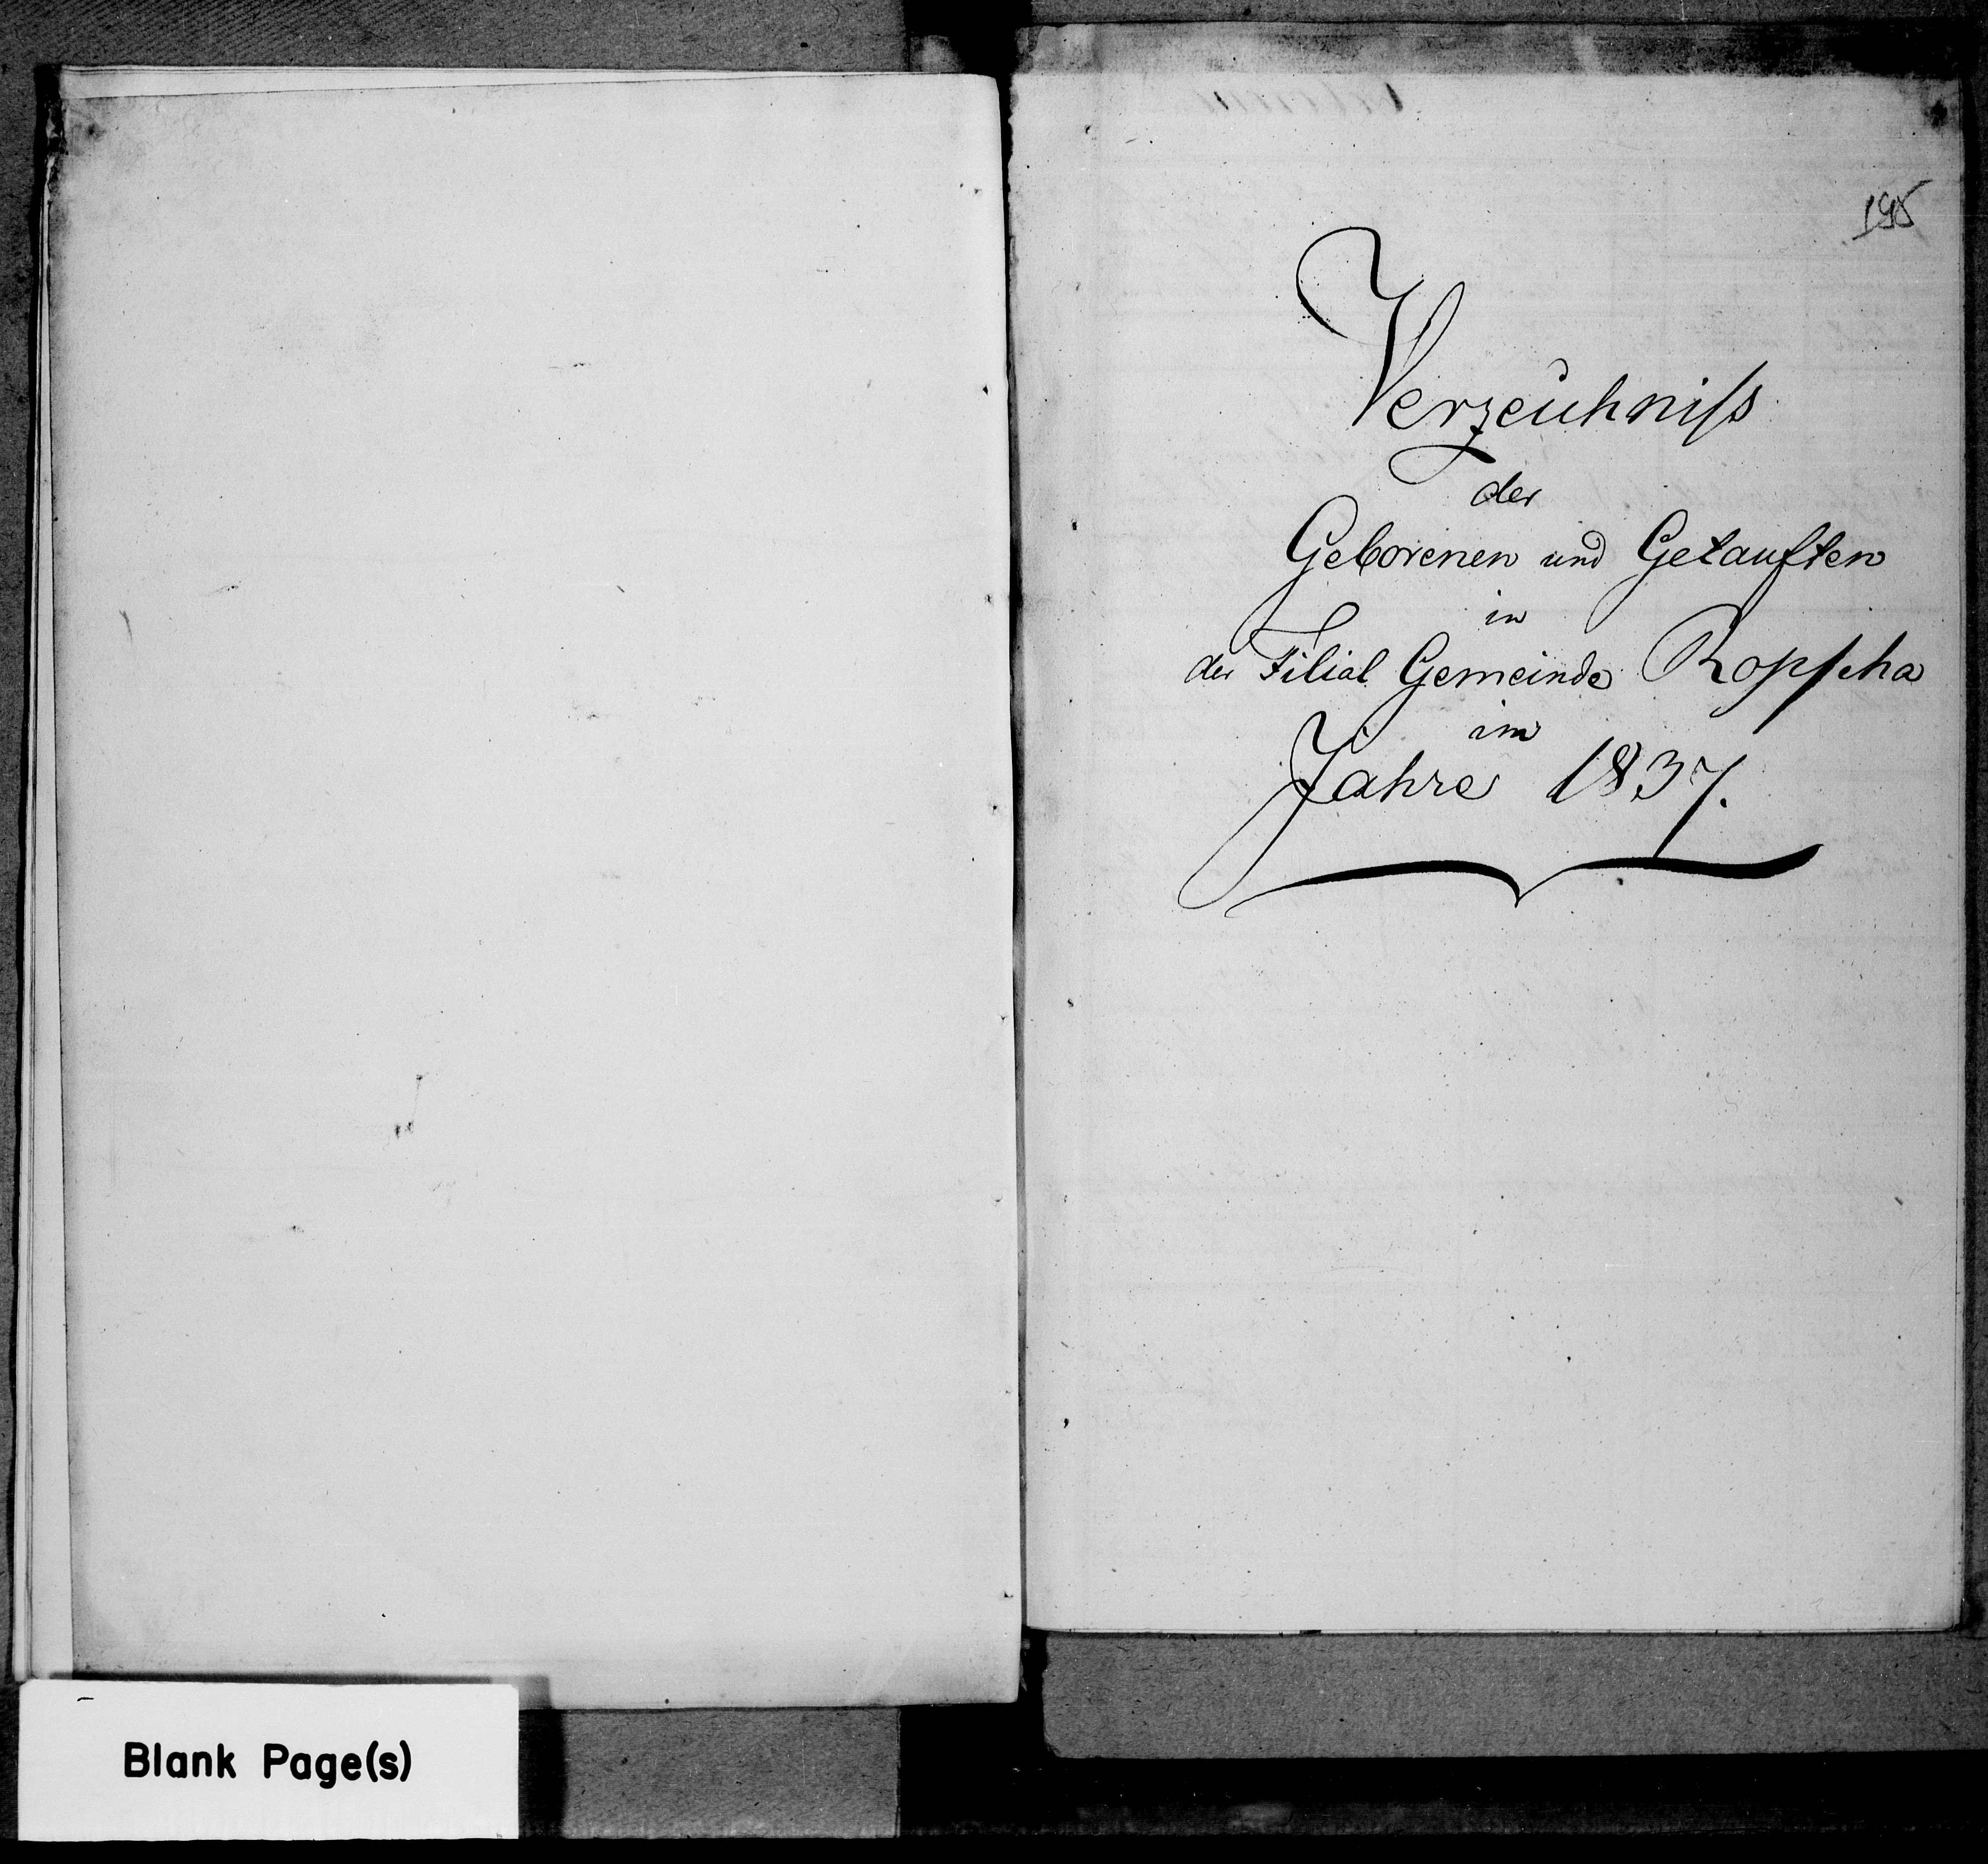 195
Verzeichniss
der
Geborenen und Getauften
in
der Filial Gemeinde Ropscha
im
Jahre 1837.
Blank Page(s)